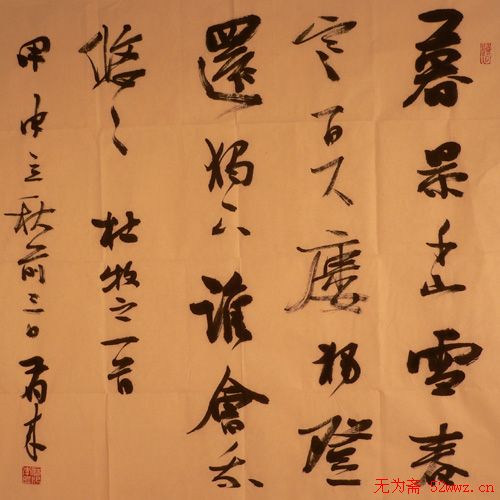 暮景千山雪春
寒百尺楼独登
還独下誰會我
悠々 杜牧之一首
甲申立秋前三日
无为斋 52wwz.cn